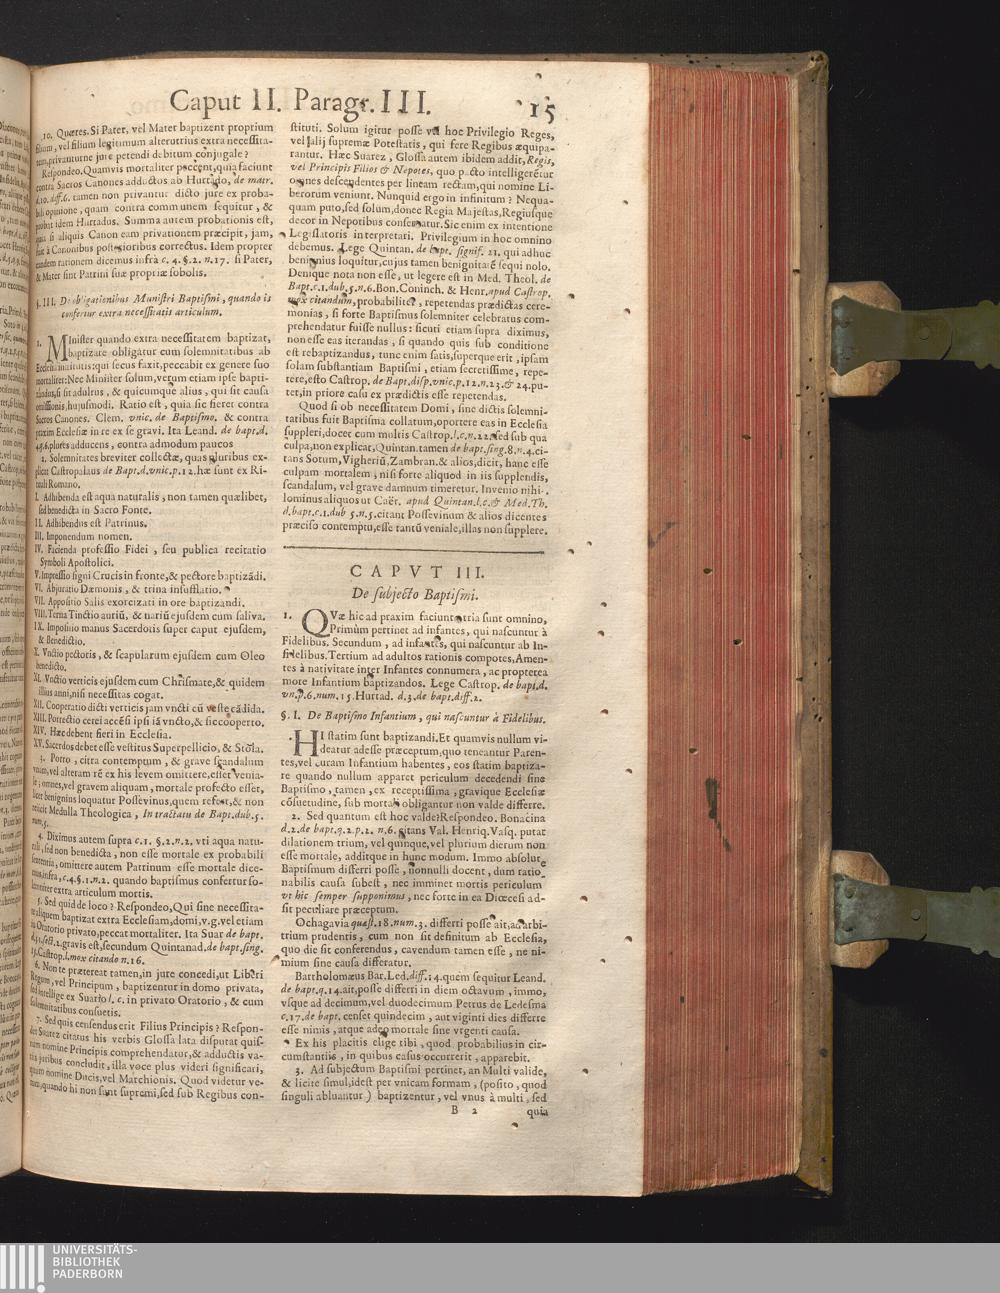 Caput II. Paragr. III. 15
10. Quæres. Si Pater, vel Mater baptizent proprium
filium, vel filium legitimum alterutrius extra necessita-
tem, priventurne jure petendi debitum conjugale?
Respondeo. Quamvis mortaliter peccent, quia faciunt
contra Sacros Canones adductos ab Hurtado, de matr.
d.10. diff.6. tamen non privantur dicto jure ex proba-
bili opinione, quam contra communem sequitur, &
probat idem Hurtados. Summa autem probationis est,
quia si aliquis Canon eam privationem præcipit, jam,
à Canonibus posterioribus correctus. Idem propter
eandem rationem dicemus infrà c. 4. §.2. n.17. si Pater,
& Mater sint Patrini suæ propriæ sobolis.
§. III. De obligationibus Ministri Baptismi, quando is
confertur extra necessitatis articulum.
1. MInister quando extra necessitatem baptizat,
baptizare obligatur cum solemnitatibus ab
Ecclesia institutis: qui secus faxit, peccabit ex genere suo
mortaliter: Nec Minister solum, verum etiam ipse bapti-
zandus, si sit adultus, & quicumque alius, qui sit causa
omissionis, hujusmodi. Ratio est, quia sic fieret contra
Sacros Canones. Clem. vnic. de Baptismo. & contra
praxim Ecclesiæ in re ex se gravi. Ita Leand. de bapt. d.
4.q.6. plores adducens, contra admodum paucos
2. Solemnitates breviter collectæ, quas pluribus ex-
plicat Castropalaus de Bapt.d.vnic.p.12. hæ sunt ex Ri-
tuali Romano.
I. Adhibenda est aqua naturalis, non tamen quælibet,
sed benedicta in Sacro Fonte.
II. Adhibendus est Patrinus.
III. Imponendum nomen.
IV. Facienda professio Fidei, seu publica recitatio
Symboli Apostolici.
V. Impressio signi Crucis in fronte, & pectore baptizãdi.
VI. Abjuratio Dæmonis, & trina insufflatio.
VII. Appositio Salis exorcizati in ore baptizandi.
VIII. Terna Tinctio auriũ, & nariũ ejusdem cum saliva.
IX. Impositio manus Sacerdotis super caput ejusdem,
& Benedictio.
X. Vnctio pectoris, & scapularum ejusdem cum Oleo
benedicto.
XI. Vnctio verticis ejusdem cum Chrismate, & quidem
illius anni, nisi necessitas cogat.
XII. Cooperatio dicti verticis jam vncti cũ veste cãdida.
XIII. Porrectio cerei accẽsi ipsi iã vncto, & sic cooperto.
XIV. Hæc debent fieri in Ecclesia.
XV. Sacerdos debet esse vestitus Superpellicio, & Stola.
3. Porro, citra contemptum, & grave scandalum
vnam, vel alteram rẽ ex his levem omittere, esset venia-
le; omnes, vel gravem aliquam, mortale profecto esset,
licet benignius loquatur Possevinus, quem refert, & non
reiicit Medulla Theologica, In tractatu de Bapt. dub.5.
num.5.
4. Diximus autem supra c.1. §.2.n.2. vti aqua natu-
rali, sed non benedicta, non esse mortale ex probabili
sententia, omittere autem Patrinum esse mortale dice-
mus infra, c.4.§.1.n.2. quando baptismus confertur so-
lemniter extra articulum mortis.
5. Sed quid de loco? Respondeo, Qui sine necessita-
te aliquem baptizat extra Ecclesiam, domi, v.g. vel etiam
in Oratorio privato, peccat mortaliter. Ita Suar de bapt.
d.31. sect.2. gravis est, secundum Quintanad. de bapt. sing.
Castrop.l. mox citando n.16.
6. Non te prætereat tamen, in jure concedi, ut Liberi
Regum, vel Principum, baptizentur in domo privata,
sed intellige ex Suario l. c. in privato Oratorio, & cum
solemnitatibus consuetis.
7. Sed quis censendus erit Filius Principis? Respon-
det Suarez citatus his verbis Glossa lata disputat quis-
nam nomine Principis comprehendatur, & adductis va-
riis juribus concludit, illa voce plus videri significari,
quam nomine Ducis, vel Marchionis. Quod videtur ve-
rum, quando hi non sunt supremi, sed sub Regibus con-
stituti. Solum igitur posse vti hoc Privilegio Reges,
vel alij supremæ Potestatis, qui fere Regibus æquipa-
rantur. Hæc Suarez, Glossa autem ibidem addit, Regis,
vel Principis Filios & Nepotes, quo pacto intelligerẽtur
omnes descendentes per lineam rectam, qui nomine Li-
berorum veniunt. Nunquid ergo in infinitum? Nequa-
quam puto, sed solum, donec Regia Majestas, Regiusque
decor in Nepotibus conservatur. Sic enim ex intentione
Legislatoris interpretati. Privilegium in hoc omnino
debemus. Lege Quintan. de bapt. signif. 21. qui adhuc
benignius loquitur, cujus tamen benignitatẽ sequi nolo.
Denique nota non esse, ut legere est in Med. Theol. de
Bapt.c.1.dub.5.n.6. Bon. Coninch. & Henr. apud Castrop.
mox citandum, probabiliter, repetendas prædictas cere-
monias, si forte Baptismus solemniter celebratus com-
prehendatur fuisse nullus: sicuti etiam supra diximus,
non esse eas iterandas, si quando quis sub conditione
est rebaptizandus, tunc enim satis, superque erit, ipsam
solam substantiam Baptismi, etiam secretissime, repe-
tere, esto Castrop. de Bapt. disp. vnic. p.12.n.23.& 24. pu-
tet, in priore casu ex prædictis esse repetendas.
Quod si ob necessitatem Domi, sine dictis solemni-
tatibus fuit Baptisma collatum, oportere eas in Ecclesia
suppleri, docet cum multis Castrop.l.c.n.22. sed sub qua
culpa, non explicat, Quintan. tamen de bapt. sing.8.n.4. ci-
tans Sotum, Vigheriũ, Zambran. & alios, dicit, hanc esse
culpam mortalem, nisi forte aliquod in iis supplendis,
scandalum, vel grave damnum timeretur. Invenio nihi-
lominus aliquos ut Caër. apud Quintan.l.c.& Med. Th.
d.bapt.c.1.dub 5.n.5. citant Possevinum & alios dicentes
præciso contemptu, esse tantũ veniale, illas non supplere.
CAPVT III.
De subjecto Baptismi.
1. QVæ hic ad praxim faciunt, tria sunt omnino,
Primùm pertinet ad infantes, qui nascuntur à
Fidelibus. Secundum, ad infantes, qui nascuntur ab In-
fidelibus. Tertium ad adultos rationis compotes, Amen-
tes à nativitate inter Infantes connumera, ac propterea
more Infantium baptizandos. Lege Castrop. de bapt.d.
vn.p.6.num.15. Hurtad. d.3.de bapt.diff.2.
§. I. De Baptismo Infantium, qui nascuntur à Fidelibus.
HI statim sunt baptizandi. Et quamvis nullum vi-
deatur adesse præceptum, quo teneantur Paren-
tes, vel curam Infantium habentes, eos statim baptiza-
re quando nullum apparet periculum decedendi sine
Baptismo, tamen, ex receptissima, gravique Ecclesiæ
cõsuetudine, sub mortali obligantur non valde differre.
2. Sed quantum est hoc valde? Respondeo. Bonacina
d.2.de bapt.q.2.p.2. n.6. citans Val. Henriq. Vasq. putat
dilationem trium, vel quinque, vel plurium dierum non
esse mortale, additque in hunc modum. Immo absolute
Baptismum differri posse, nonnulli docent, dum ratio-
nabilis causa subest, nec imminet mortis periculum
vt hic semper supponimus, nec forte in ea Diœcesi ad-
sit peculiare præceptum.
Ochagavia quæst.18.num.3. differri posse ait, ad arbi-
trium prudentis, cum non sit definitum ab Ecclesia,
quo die sit conferendus, cavendum tamen esse, ne ni-
mium sine causa differatur.
Bartholomæus Bar. Led. diff.14. quem sequitur Leand.
de bapt.q.14. ait, posse differri in diem octavum, immo,
vsque ad decimum, vel duodecimum Petrus de Ledesma
c.17.de bapt. censet quindecim, aut viginti dies differre
esse nimis, atque adeo mortale sine vrgenti causa.
Ex his placitis elige tibi, quod probabilius in cir-
cumstantiis, in quibus casus occurrerit, apparebit.
3. Ad subjectum Baptismi pertinet, an Multi valide,
& licite simul, idest per vnicam formam, (posito, quod
singuli abluantur) baptizentur, vel vnus à multi, sed
B 2 quia
UNIVERSITÄTS-
BIBLIOTHEK
PADERBORN